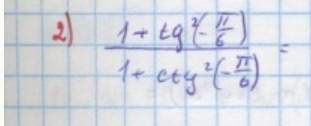 2) (1 + tg²(-π/6)) / (1 + ctg²(-π/6)) =